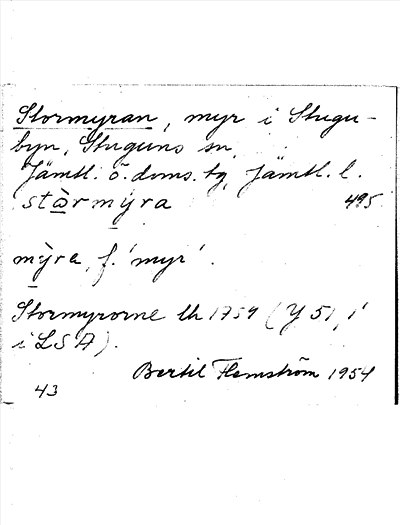 Stormyran, myr i Stugu-
byn, Stuguns sn,
Jämtl. ö. doms. tg, Jämtl. l.
stòrmýra 495
mỳra, f. 'myr'.
Stormyrorne lh 1759 (Y 51, 1
i LSA).
Bertil Flemström 1954
43